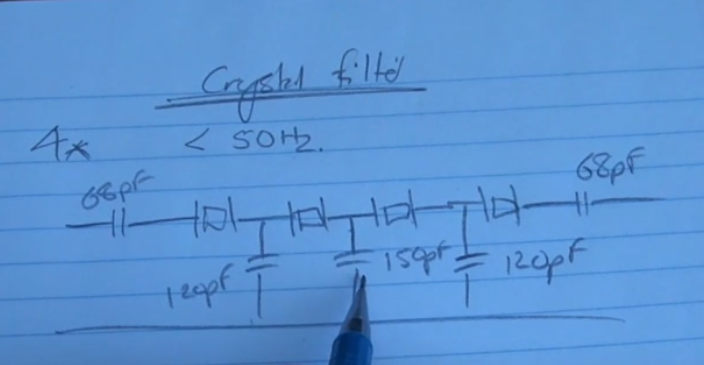 Crystal filter
4x < 50Hz.
68pF 68pF
120pF 150pF 120pF